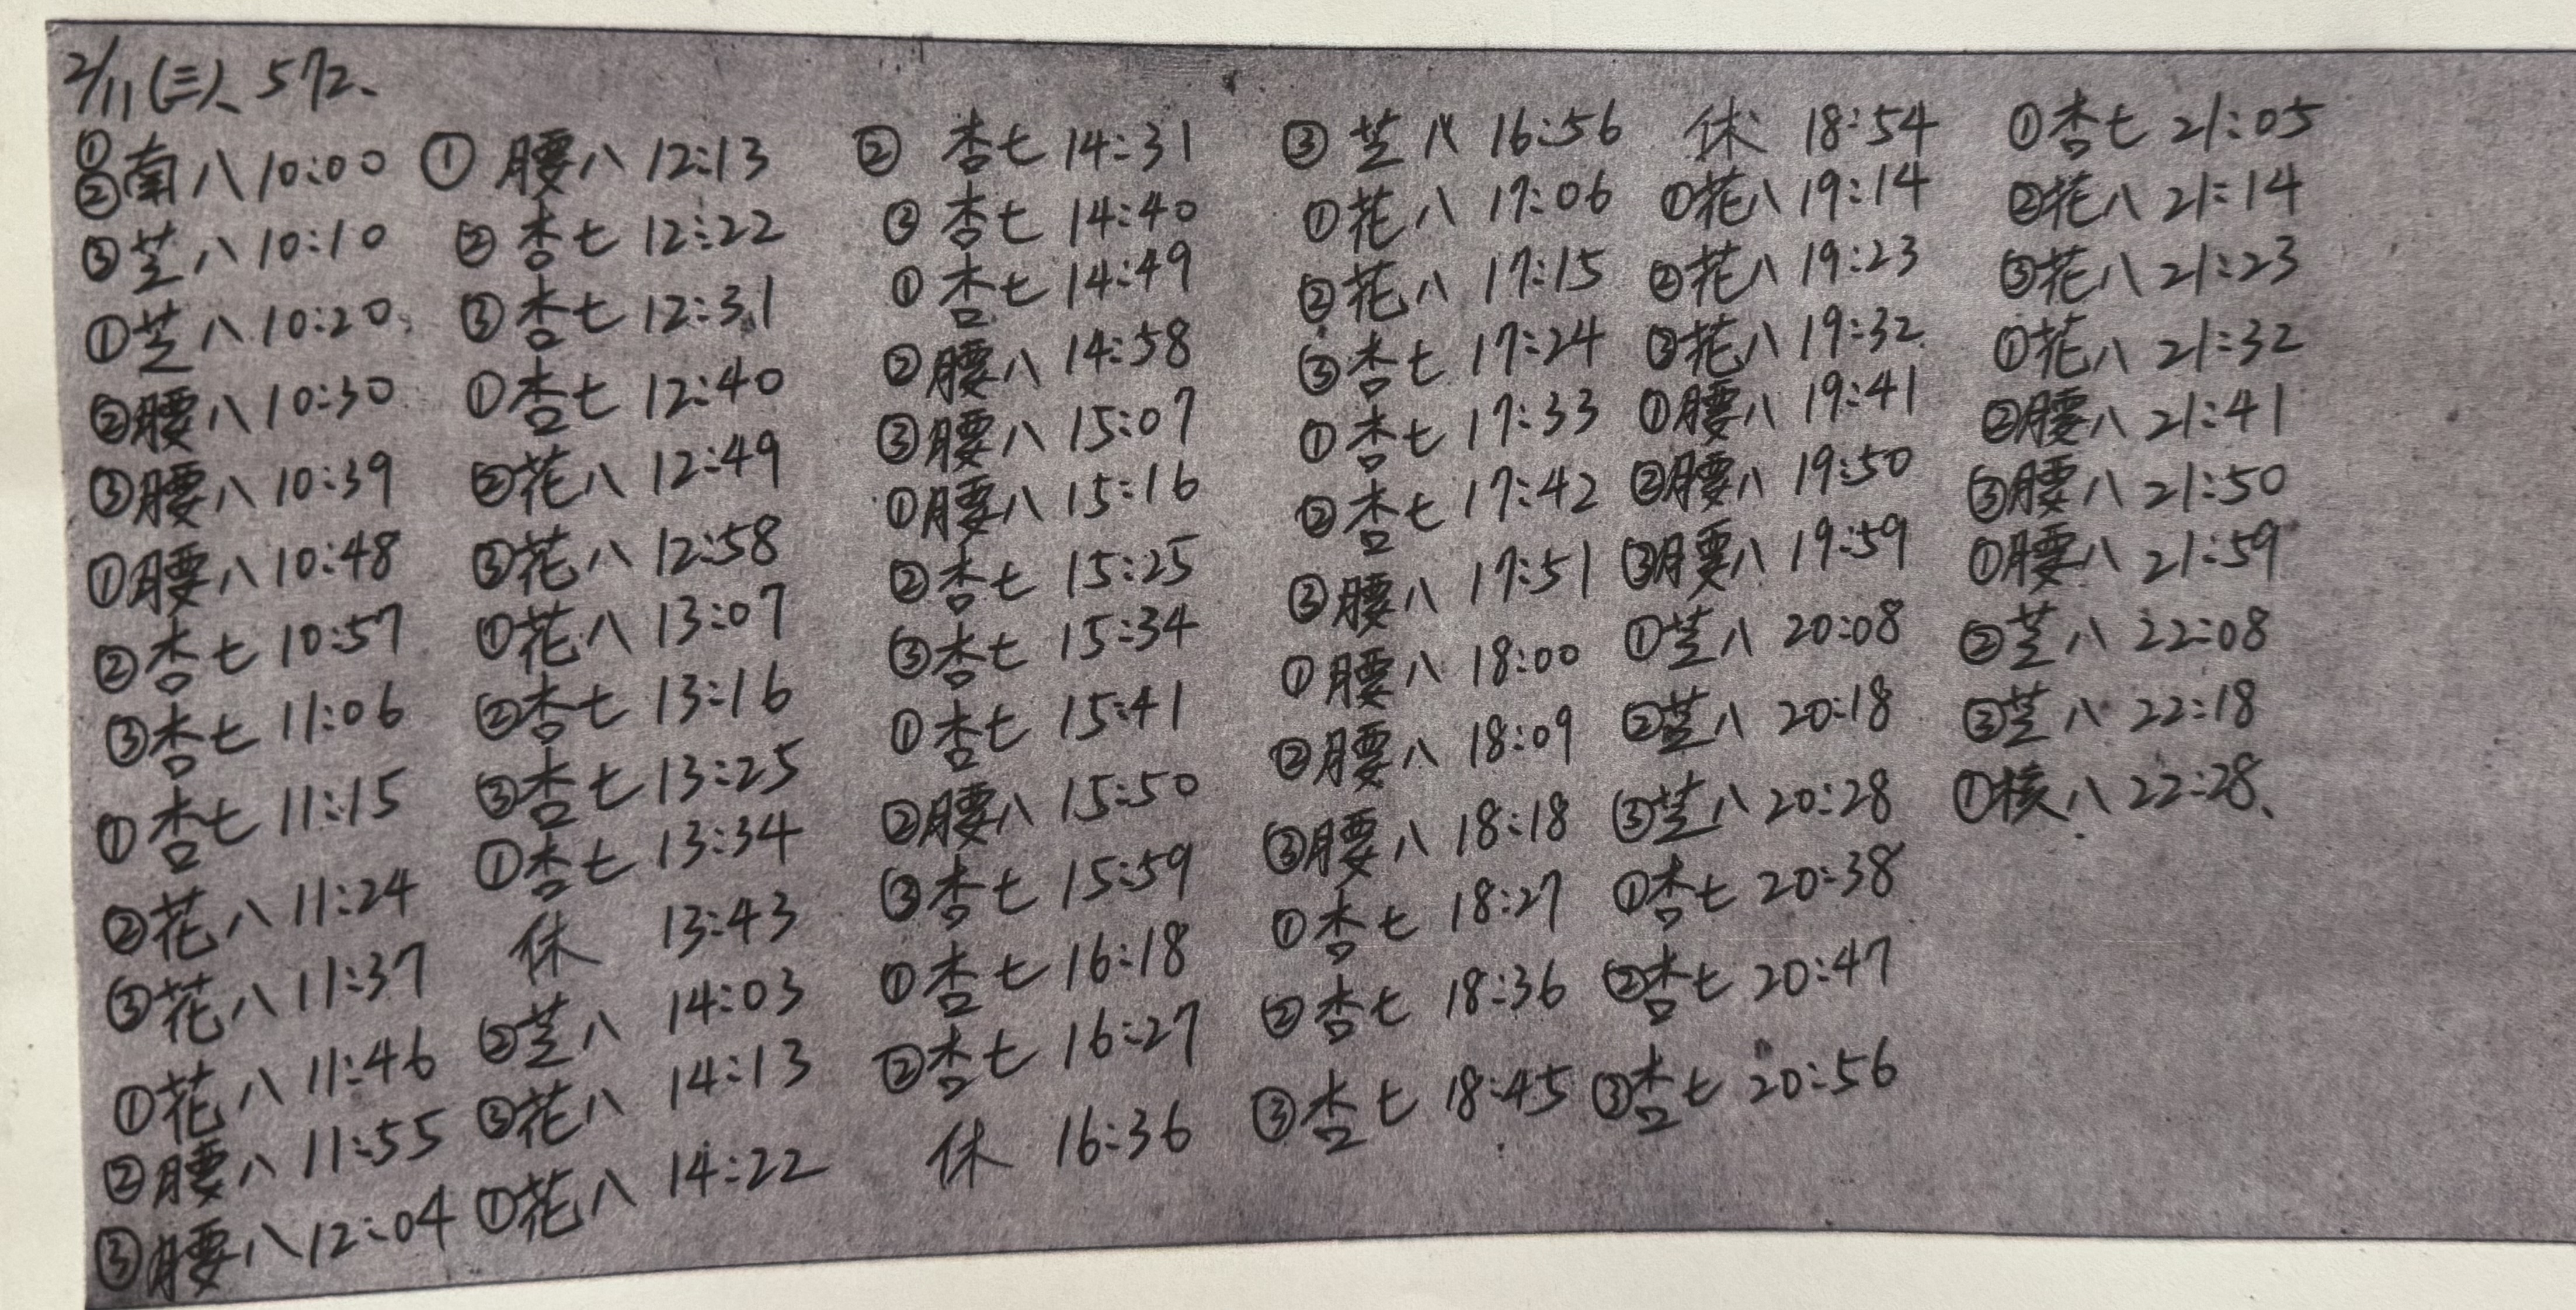 2/11(三)、572、
①②南八10:00
③芝八10:10
①芝八10:20
②腰八10:30
③腰八10:39
①腰八10:48
②杏七10:57
③杏七11:06
①杏七11:15
②花八11:24
③花八11:37
①花八11:46
②腰八11:55
③腰八12:04
①腰八12:13
②杏七12:22
③杏七12:31
①杏七12:40
②花八12:49
③花八12:58
①花八13:07
②杏七13:16
③杏七13:25
①杏七13:34
休 13:43
②芝八14:03
③花八14:13
①花八14:22
②杏七14:31
③杏七14:40
①杏七14:49
②腰八14:58
③腰八15:07
①腰八15:16
②杏七15:25
③杏七15:34
①杏七15:41
②腰八15:50
③杏七15:59
①杏七16:18
②杏七16:27
休 16:36
③芝八16:56
①花八17:06
②花八17:15
③杏七17:24
①杏七17:33
②杏七17:42
③腰八17:51
①腰八18:00
②腰八18:09
③腰八18:18
①杏七18:27
②杏七18:36
③杏七18:45
休 18:54
①花八19:14
②花八19:23
③花八19:32
①腰八19:41
②腰八19:50
③腰八19:59
①芝八20:08
②芝八20:18
③芝八20:28
①杏七20:38
②杏七20:47
③杏七20:56
①杏七21:05
②花八21:14
③花八21:23
①花八21:32
②腰八21:41
③腰八21:50
①腰八21:59
②芝八22:08
③芝八22:18
①核八22:28、